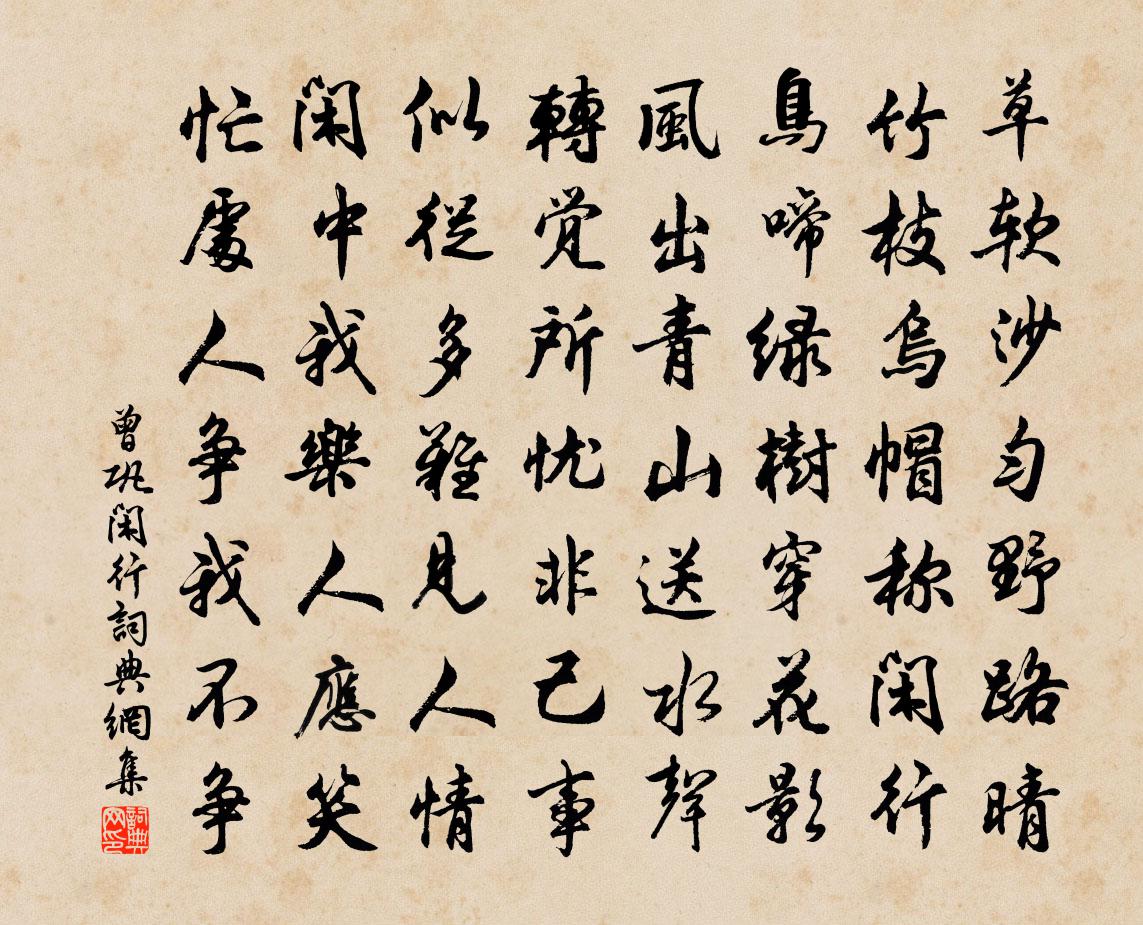 草软沙匀野路晴
竹枝烏帽称闲行
鳥啼绿樹穿花影
風出青山送水聲
轉觉所忧非己事
似從多難見人情
闲中我樂人應笑
忙處人争我不争
曾巩闲行詞典網集
詞典网印